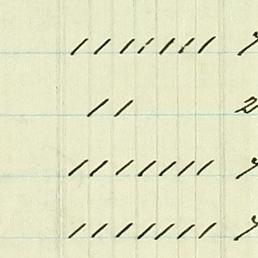 / / / / / / / 7
/ / 2
/ / / / / / / 7
/ / / / / / / 7